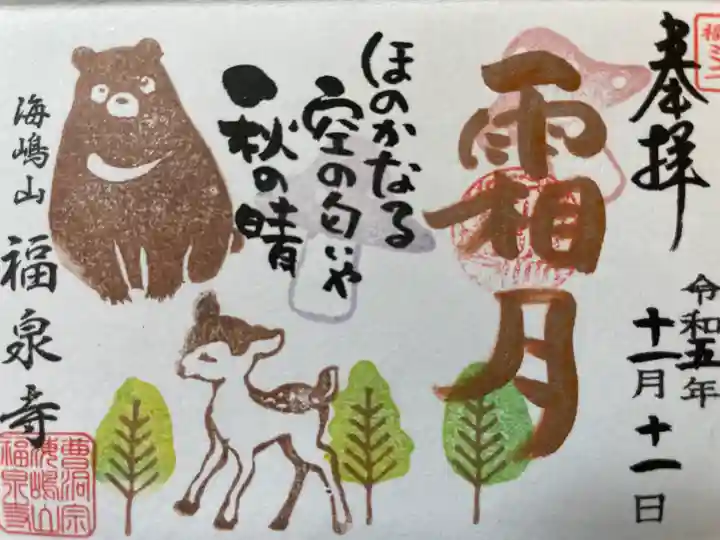 奉拝
令和五年
十一月十一日
霜月
ほのかなる
空の匂いや
秋の晴
海嶋山
福泉寺
曹洞宗
海嶋山
福泉寺